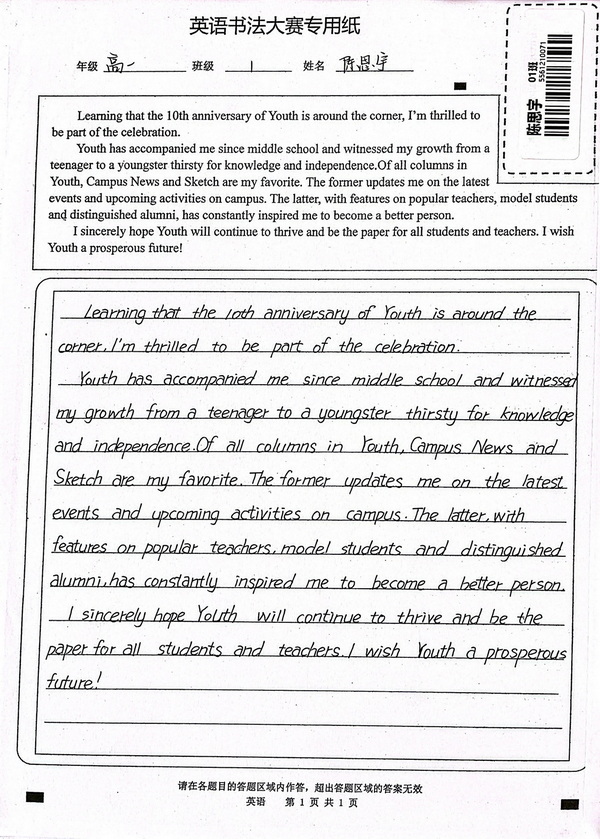 英语书法大赛专用纸
年级 高一 班级 1 姓名 陈思宇
陈思宇 01班
5561210071
Learning that the 10th anniversary of Youth is around the corner, I'm thrilled to
be part of the celebration.
Youth has accompanied me since middle school and witnessed my growth from a
teenager to a youngster thirsty for knowledge and independence.Of all columns in
Youth, Campus News and Sketch are my favorite. The former updates me on the latest
events and upcoming activities on campus. The latter, with features on popular teachers, model students
and distinguished alumni, has constantly inspired me to become a better person.
I sincerely hope Youth will continue to thrive and be the paper for all students and teachers. I wish
Youth a prosperous future!
Learning that the 10th anniversary of Youth is around the
corner, I'm thrilled to be part of the celebration.
Youth has accompanied me since middle school and witnessed
my growth from a teenager to a youngster thirsty for knowledge
and independence.Of all columns in Youth, Campus News and
Sketch are my favorite. The former updates me on the latest
events and upcoming activities on campus. The latter, with
features on popular teachers, model students and distinguished
alumni, has constantly inspired me to become a better person.
I sincerely hope Youth will continue to thrive and be the
paper for all students and teachers. I wish Youth a prosperous
future!
请在各题目的答题区域内作答，超出答题区域的答案无效
英语 第 1 页 共 1 页